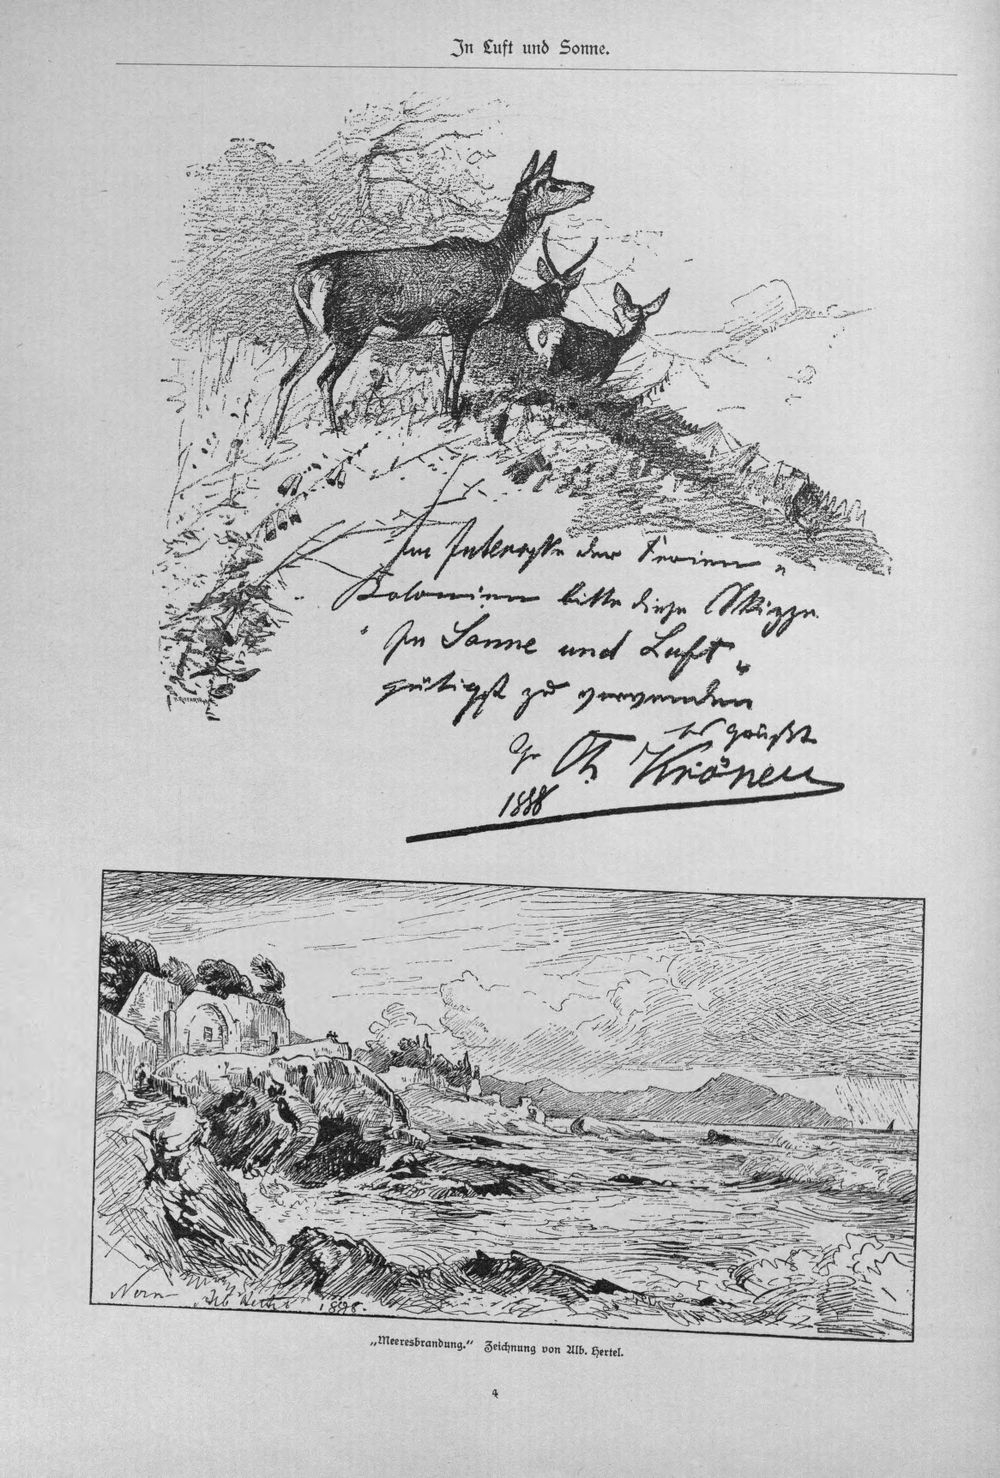 In Luft und Sonne.
Im Interesse der Ferien „
Kolonien bitte diese Skizze
"In Sonne und Luft"
gütigst zu verwenden
es grüßt
Ihr Th Kröner
1888
Nervi Alb Hertel 1888.
„Meeresbrandung.“ Zeichnung von Alb. Hertel.
4